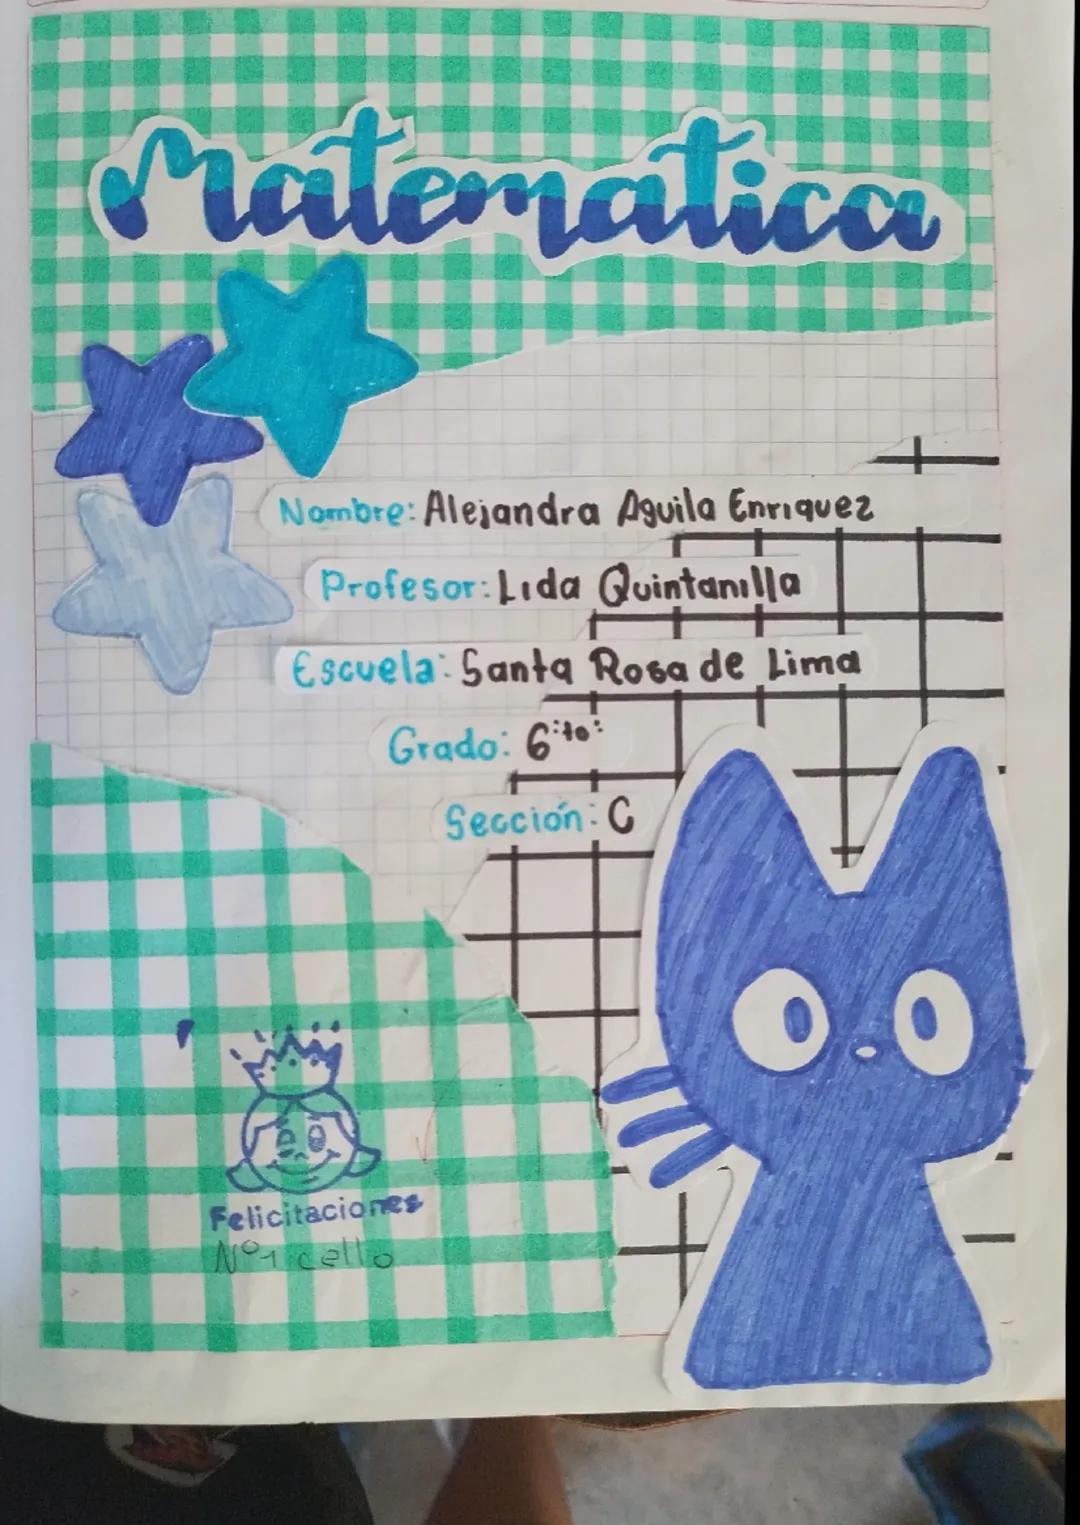 Matematica
Nombre: Alejandra Aguila Enriquez
Profesor: Lida Quintanilla
Escuela: Santa Rosa de Lima
Grado: 6:to:
Sección: C
Felicitaciones
Nº1 cello